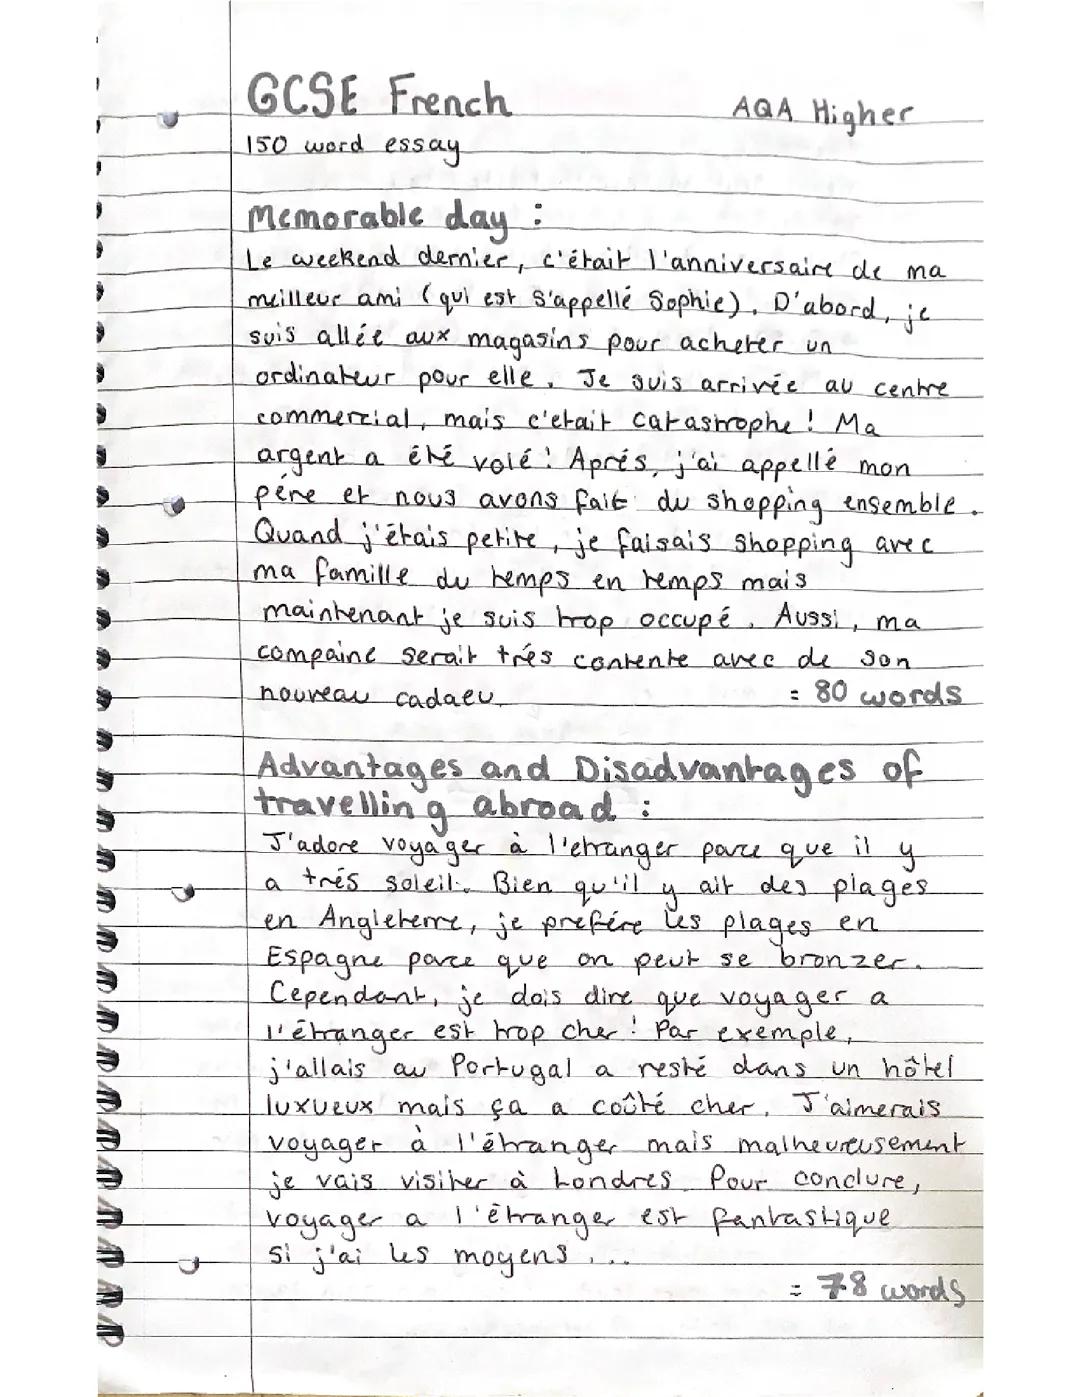 GCSE French
AQA Higher
150 word essay
Memorable day :
Le weekend dernier, c'était l'anniversaire de ma
meilleur ami (qui est s'appellé Sophie). D'abord, je
suis allée aux magasins pour acheter un
ordinateur pour elle. Je suis arrivée au centre
commercial, mais c'etait catastrophe! Ma
argent a été volé! Aprés, j'ai appellé mon
pére et nous avons fait du shopping ensemble.
Quand j'étais petite, je faisais shopping avec
ma famille du temps en temps mais
maintenant je suis trop occupé. Aussi, ma
compaine serait trés contente avec de son
nouveau cadaeu.
= 80 words
Advantages and Disadvantages of
travelling abroad :
J'adore voyager à l'etranger parce que il y
a trés soleil. Bien qu'il y ait des plages
en Angleterre, je prefére les plages en
Espagne parce que on peut se bronzer.
Cependant, je dois dire que voyager a
l'étranger est trop cher! Par exemple,
j'allais au Portugal a resté dans un hôtel
luxueux mais ça a coûté cher. J'aimerais
voyager à l'étranger mais malheureusement
je vais visiter à Londres. Pour conclure,
voyager a l'étranger est fantastique
si j'ai les moyens ...
= 78 words